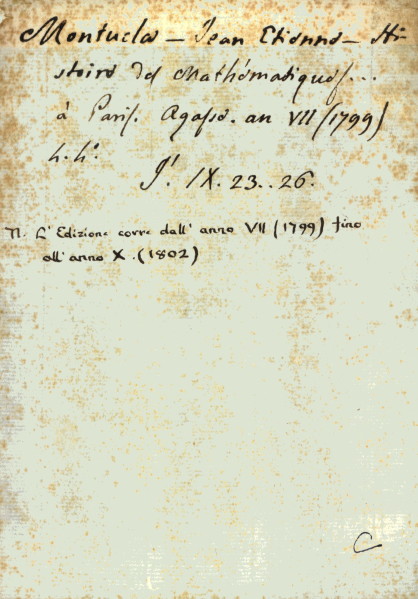 Montucla – Jean Etienne – Hi-
stoire des Mathématiques...
à Paris. Agasse. an VII (1799)
4. 4°.
J'. IX. 23..26.
N. L'Edizione corre dall'anno VII (1799) fino
all'anno X. (1802)
C